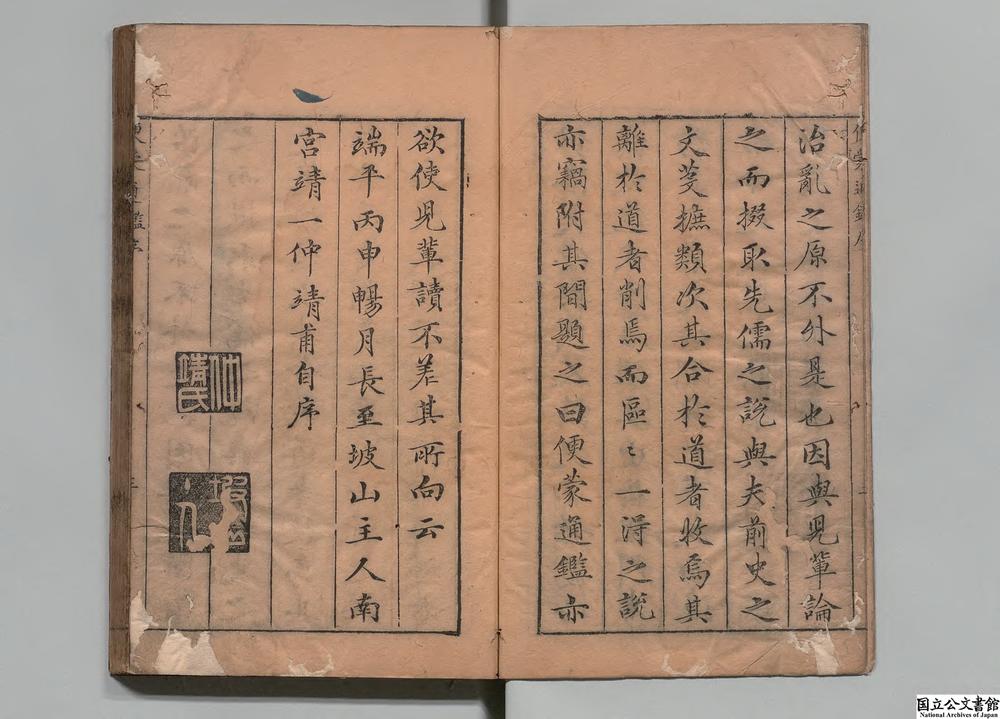 治亂之原不外是也因與児輩論
之而掇取先儒之說與夫前史之
文芟摭類次其合於道者收焉其
離於道者削焉而區〻一得之說
亦竊附其間題之曰便蒙通鑑亦
欲使児輩讀不差其所向云
端平丙申暢月長至坡山主人南
宫靖一仲靖甫自序
仲靖氏
国立公文書館
National Archives of Japan